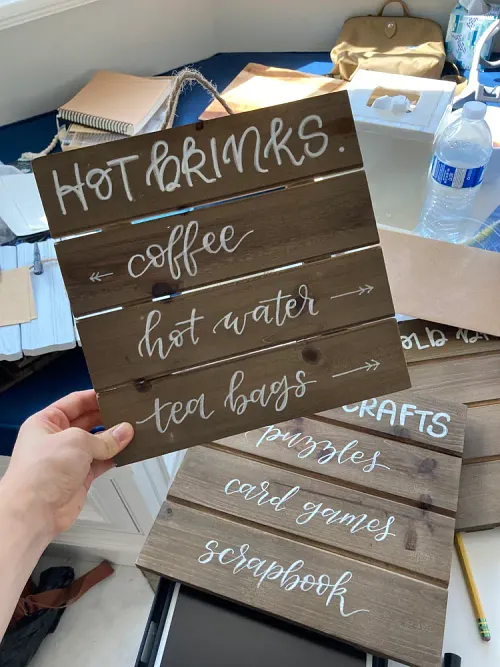 HOT DRINKS.
← coffee
hot water →
tea bags →
CRAFTS
puzzles
card games
scrapbook
OLD